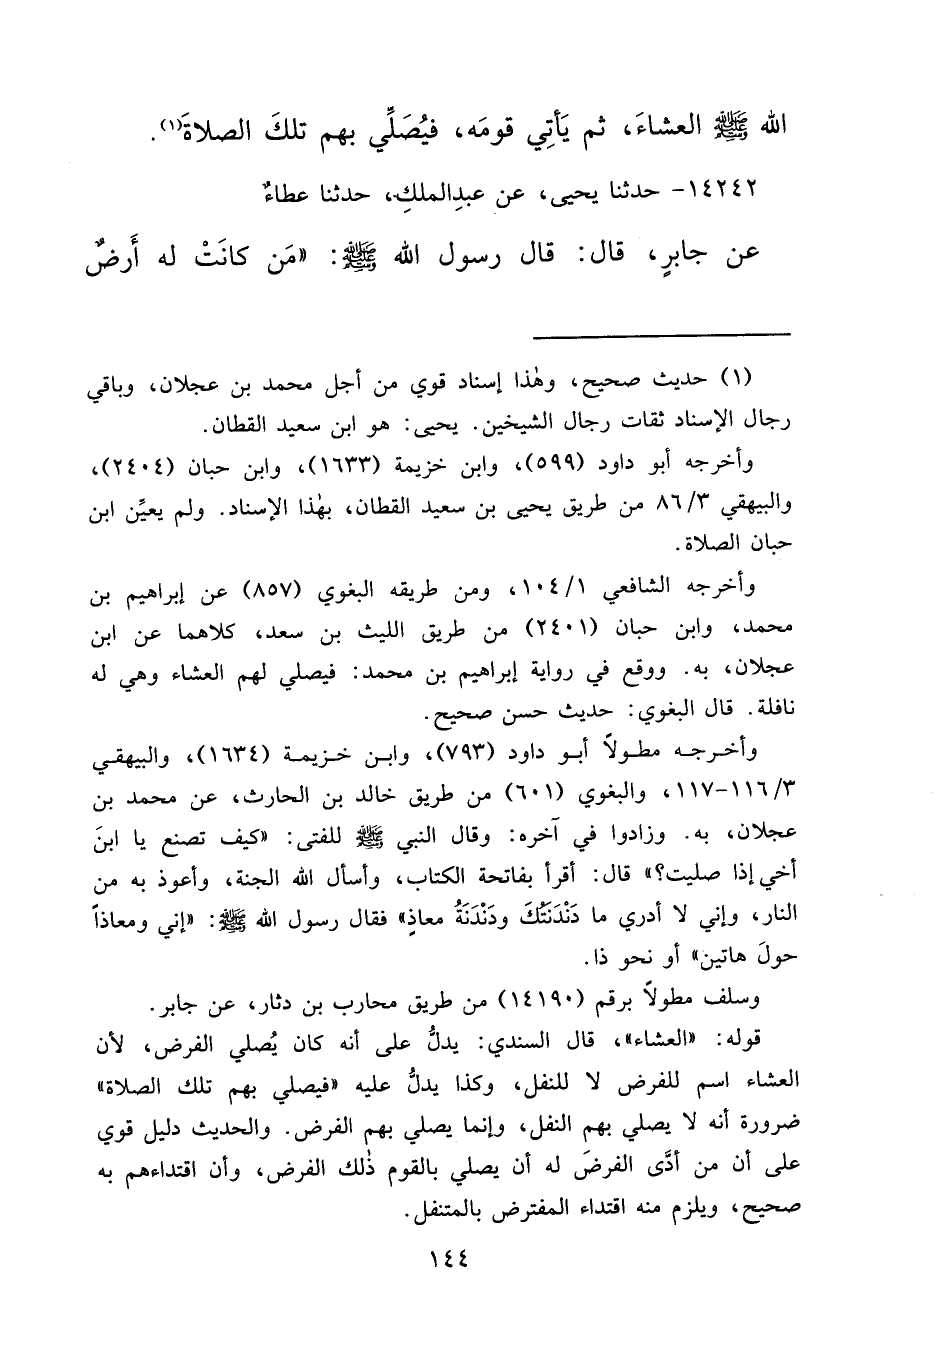 الله ﷺ العشاءَ، ثم يَأتِي قومَه، فيُصَلِّي بهم تلكَ الصلاةَ(١).
١٤٢٤٢- حدثنا يحيى، عن عبدِالملكِ، حدثنا عطاءٌ
عن جابرٍ، قال: قال رسول الله ﷺ: «مَن كانَتْ له أَرضٌ
(١) حديث صحيح، وهٰذا إسناد قوي من أجل محمد بن عجلان، وباقي
رجال الإسناد ثقات رجال الشيخين. يحيى: هو ابن سعيد القطان.
وأخرجه أبو داود (٥٩٩)، وابن خزيمة (١٦٣٣)، وابن حبان (٢٤٠٤)،
والبيهقي ٨٦/٣ من طريق يحيى بن سعيد القطان، بهٰذا الإسناد. ولم يعيِّن ابن
حبان الصلاة.
وأخرجه الشافعي ١٠٤/١، ومن طريقه البغوي (٨٥٧) عن إبراهيم بن
محمد، وابن حبان (٢٤٠١) من طريق الليث بن سعد، كلاهما عن ابن
عجلان، به. ووقع في رواية إبراهيم بن محمد: فيصلي لهم العشاء وهي له
نافلة. قال البغوي: حديث حسن صحيح.
وأخرجه مطولاً أبو داود (٧٩٣)، وابن خزيمة (١٦٣٤)، والبيهقي
١١٦/٣-١١٧، والبغوي (٦٠١) من طريق خالد بن الحارث، عن محمد بن
عجلان، به. وزادوا في آخره: وقال النبي ﷺ للفتى: «كيف تصنع يا ابنَ
أخي إذا صليت؟» قال: أقرأ بفاتحة الكتاب، وأسأل الله الجنة، وأعوذ به من
النار، وإني لا أدري ما دَنْدَنَتُكَ ودَنْدَنَةُ معاذٍ» فقال رسول الله ﷺ: «إني ومعاذاً
حولَ هاتين» أو نحو ذا.
وسلف مطولاً برقم (١٤١٩٠) من طريق محارب بن دثار، عن جابر.
قوله: «العشاء»، قال السندي: يدلُّ على أنه كان يُصلي الفرض، لأن
العشاء اسم للفرض لا للنفل، وكذا يدلُّ عليه «فيصلي بهم تلك الصلاة»
ضرورة أنه لا يصلي بهم النفل، وإنما يصلي بهم الفرض. والحديث دليل قوي
على أن من أدَّى الفرضَ له أن يصلي بالقوم ذٰلك الفرض، وأن اقتداءهم به
صحيح، ويلزم منه اقتداء المفترض بالمتنفل.
١٤٤